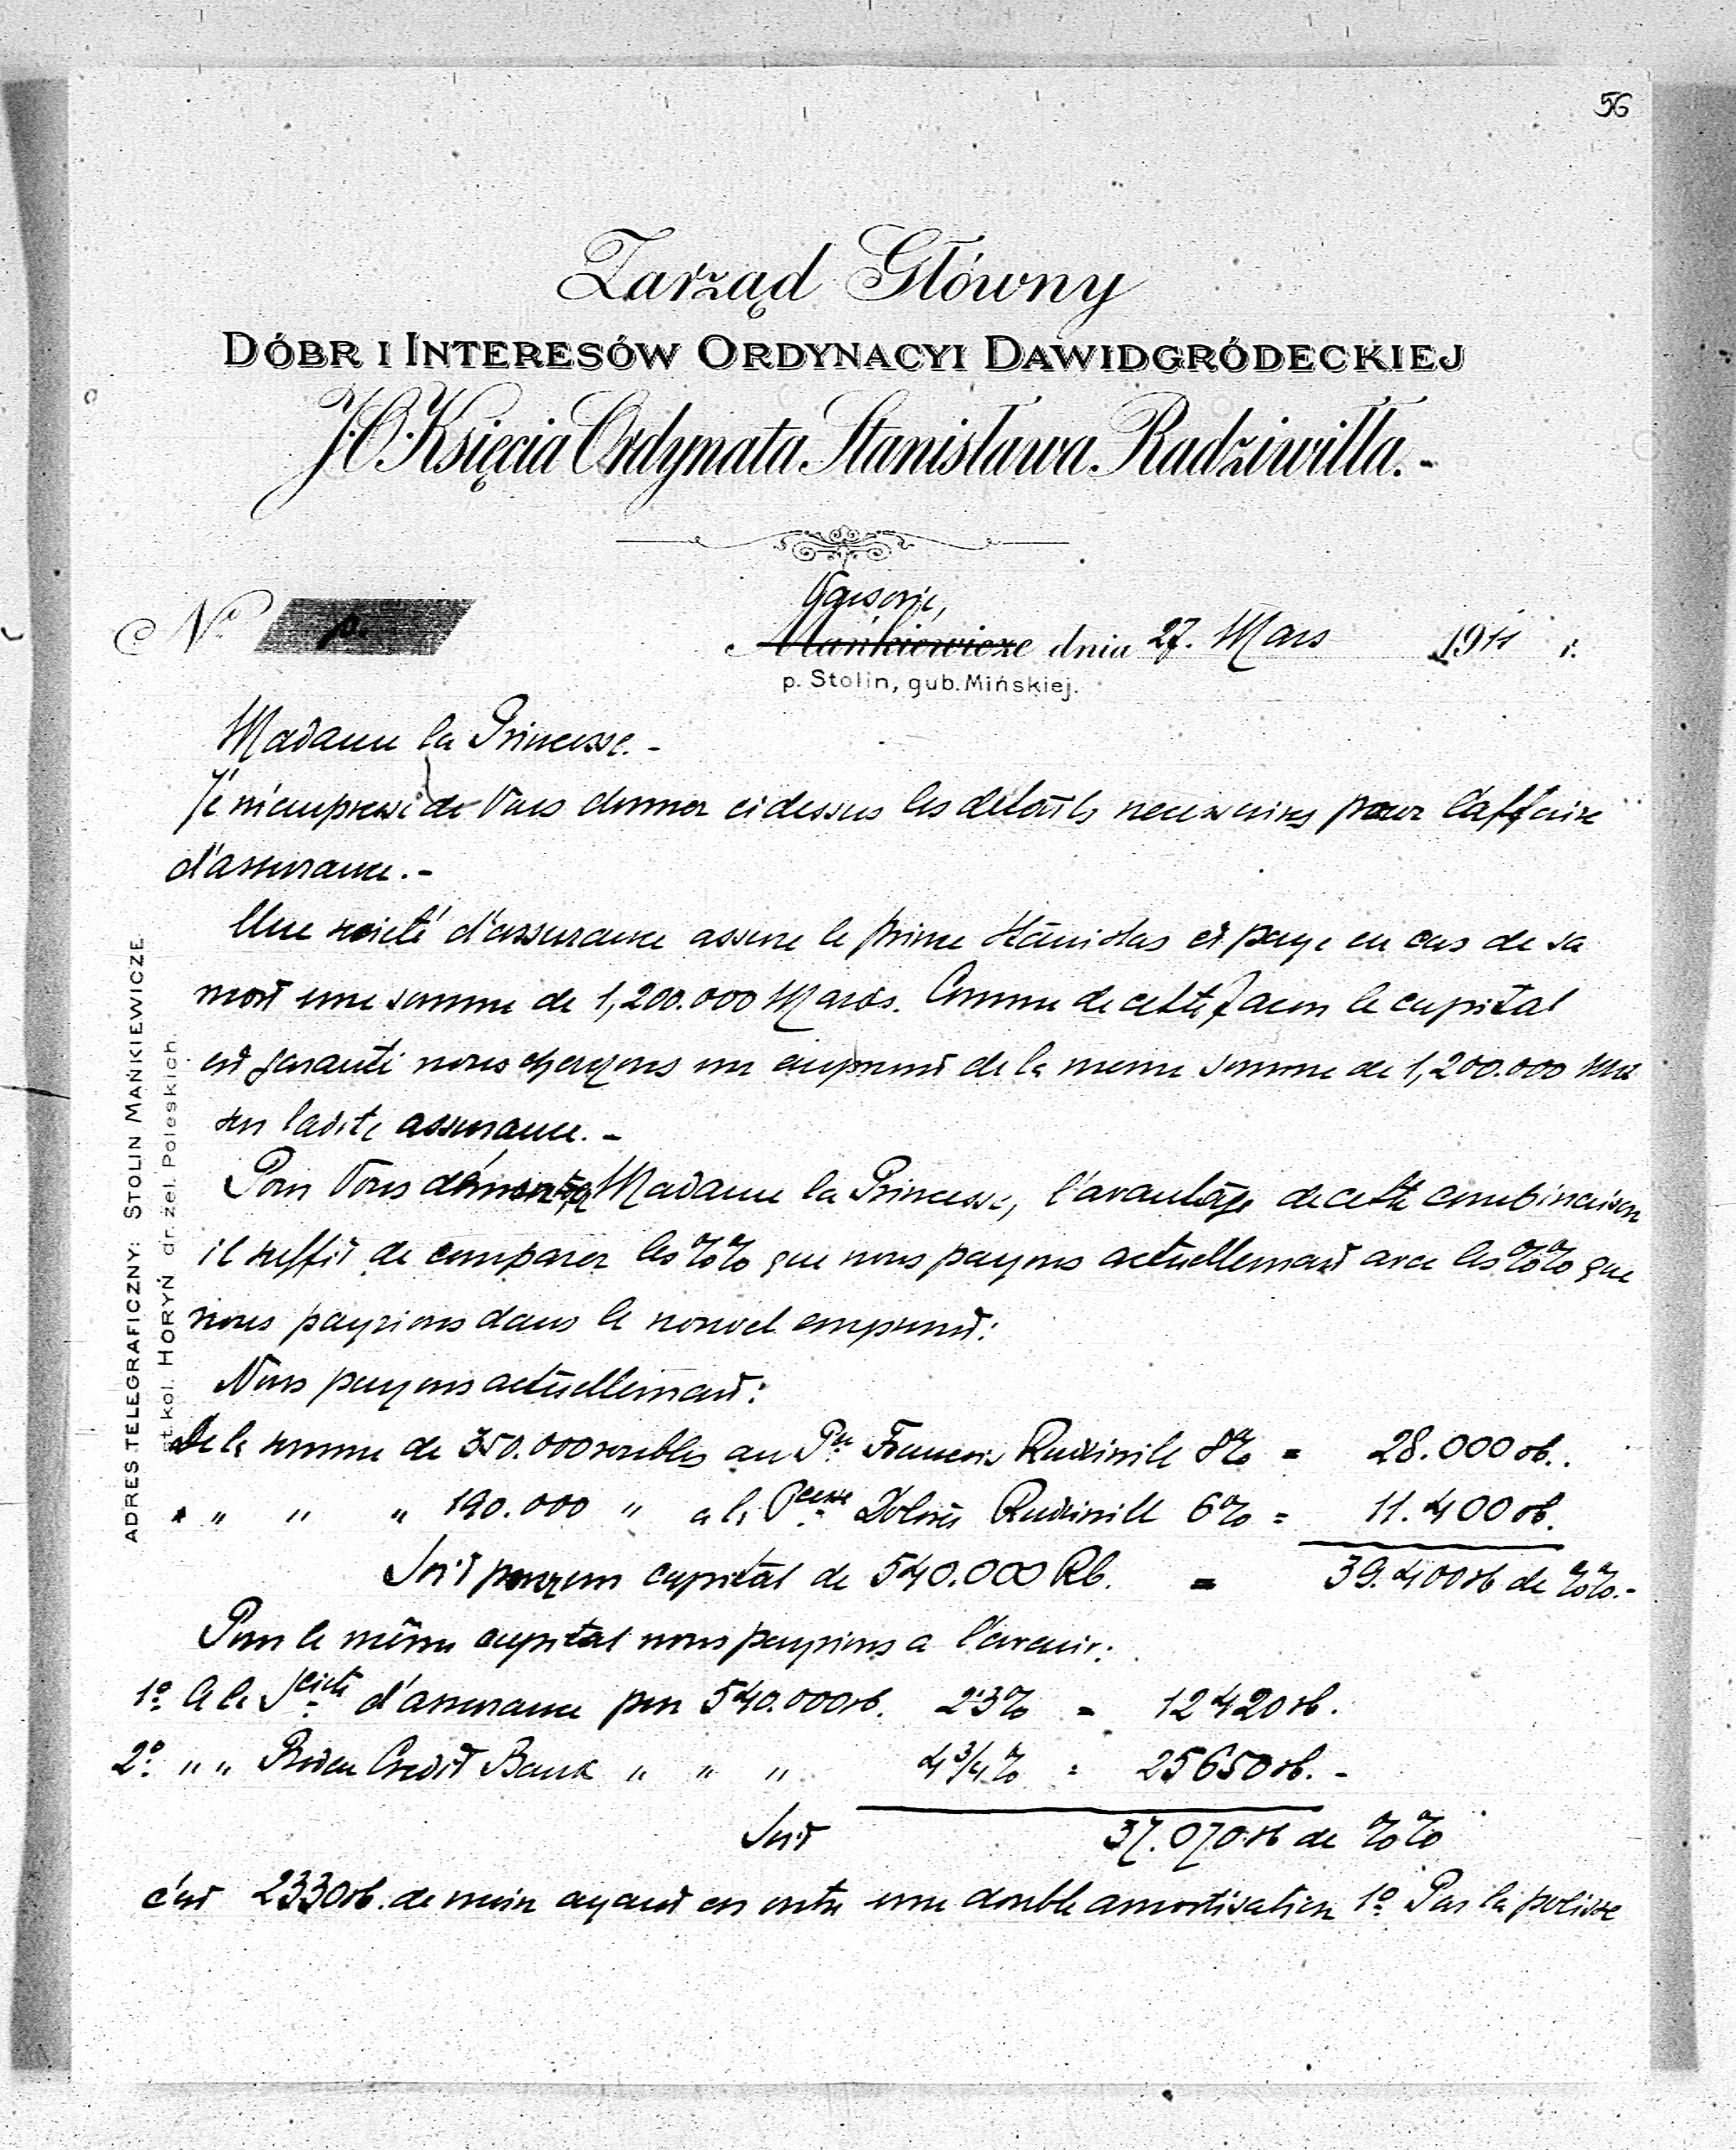 56
Zarząd Główny
DÓBR I INTERESÓW ORDYNACYI DAWIDGRÓDECKIEJ
J.O. Księcia Ordynata Stanisława Radziwiłła.-
Varsovie,
№ Mańkiewicze dnia 27. Mars 1911 r.
p. Stolin, gub. Mińskiej.
ADRES TELEGRAFICZNY: STOLIN MAŃKIEWICZE.
st. kol. HORYŃ dr. żel. Poleskich.
Madame la Princesse.-
Je m'empresse de Vous donner cidessus les details necessaires pour l'affaire
d'assurance.-
Une société d'assurance assure le prince Stanislas et paye en cas de sa
mort une somme de 1,200.000 Marks. Comme de cette facon le capital
est garanti nous un emprunt de la meme somme de 1,200.000
sur ladite assurance.-
Pour Vous démontrer Madame la Princesse, l'avantage de cette combinaison
il suffit de comparer les %% que nous payons actuellemant avec les %% que
nous payrions dans le nouvel emprunt:
Nous payons actuellemant:
De la somme de 350.000 roubles au Pce Francois Radziwill 8% = 28.000 rb.
" " " " 190.000 " a la Pcesse Dolorès Radziwill 6% = 11.400 rb.
Soit pour un capital de 540.000 Rb. = 39.400 rb de %%.-
Pour le même capital nous payrions a l'avenir:
1º A la Société d'assurance pour 540.000 rb. 2'3% = 12420 rb.
2º " " Boden Credit Bank " " " 4 3/4% = 25650 rb.-
Soit 37.070 rb de %%
c'est 2330 rb. de moins ayant en outre une double amortisation 1º Par la polisse